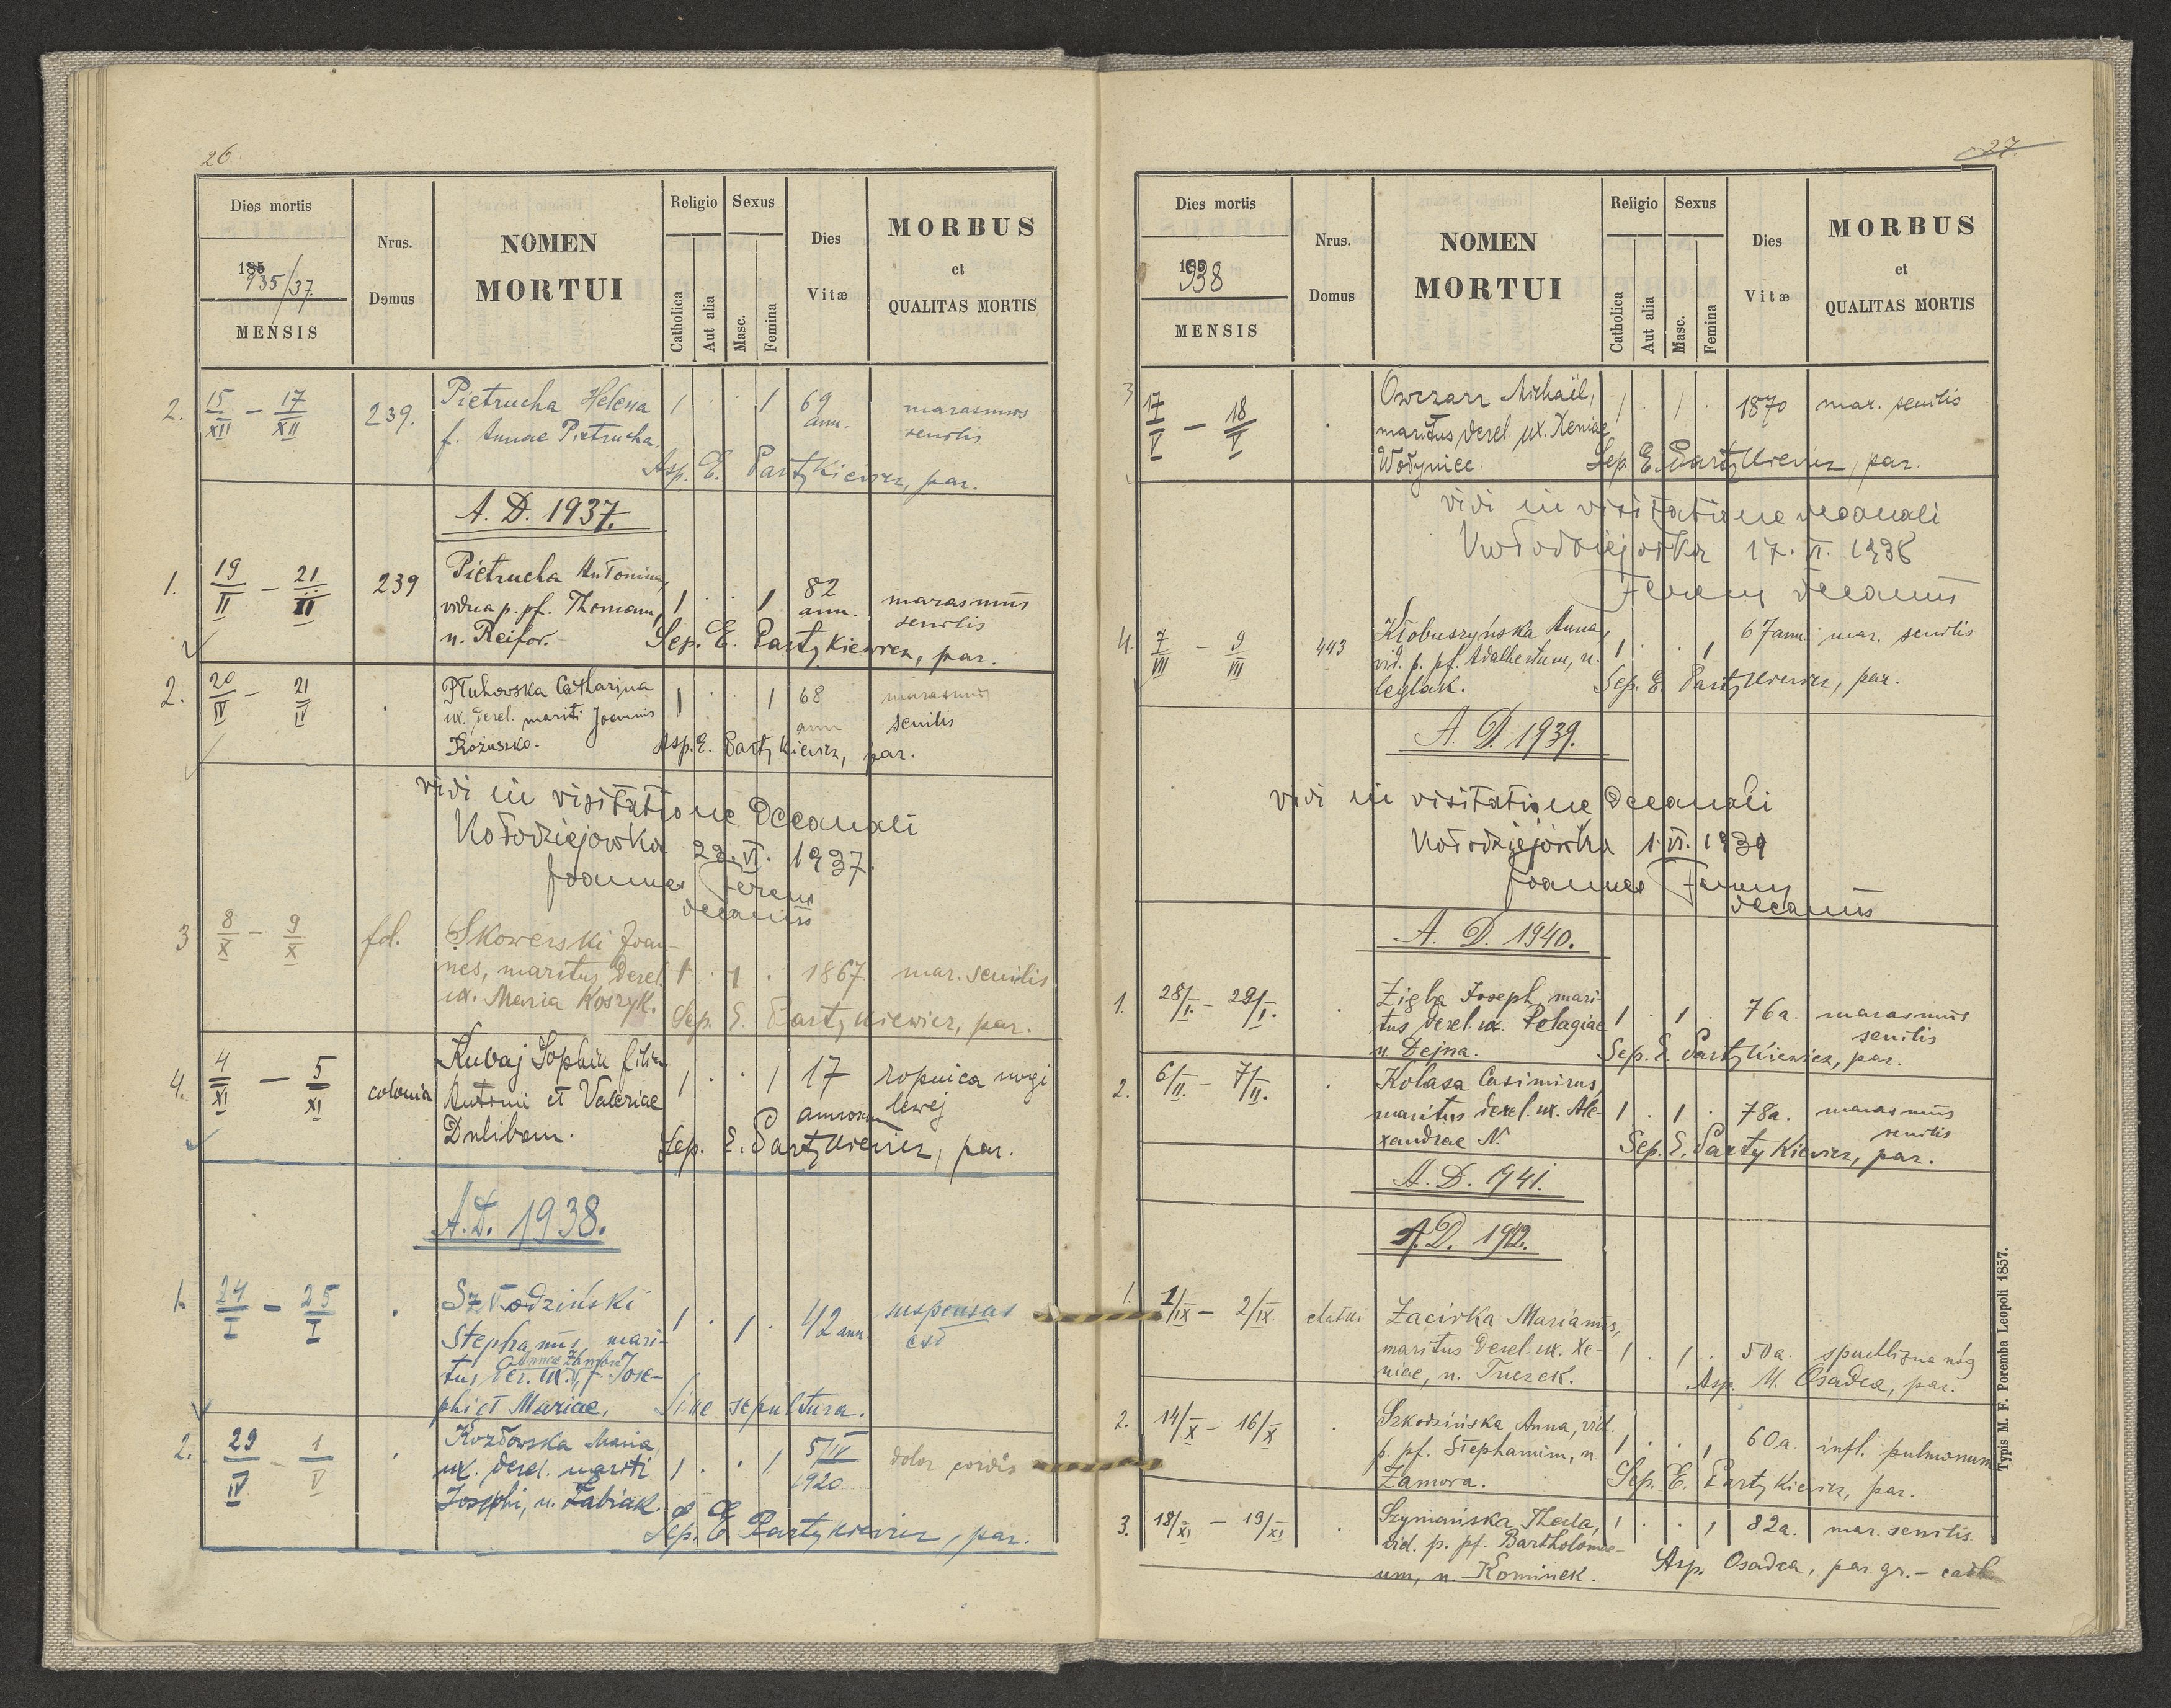 26.
Dies mortis
185
935/37.
MENSIS
Nrus.
Domus
NOMEN
MORTUI
Religio
Catholica
Aut alia
Sexus
Masc.
Femina
Dies
Vitæ
MORBUS
et
QUALITAS MORTIS
2. 15/XII – 17/XII 239. Pietrucha Helena 1 . . 1 69 ann. marasmus senilis
f. Annae Pietrucha.
Asp. E. Partykiewicz, par.
A. D. 1937.
1. 19/II – 21/II 239 Pietrucha Antonina, 1 . . 1 82 ann. marasmus senilis
vidua p. pf. Thomam,
n. Reifor.
Sep. E. Partykiewicz, par.
2. 20/IV – 21/IV . Płuhowska Catharina 1 . . 1 68 ann marasmus senilis
ux. derel. mariti Joannis
Kożuszko.
Asp. E. Partykiewicz, par.
vidi in visitatione Decanali
Kołodziejowka 22. VI. 1937.
Joannes Ferenc
decanus
3 8/X – 9/X fol. Skowerski Joan- 1 . 1 . 1867 mar. senilis
nes, maritus derel.
ux. Maria Koszyk.
Sep. E. Partykiewicz, par.
4. 4/XI – 5/XI colonia Kubaj Sophia filia 1 . . 1 17 annorum ropnica nogi lewej
Antonii et Valeriae
Dulibam.
Sep. E. Partykiewicz, par.
A. D. 1938.
1. 24/I – 25/I . 1 . 1 . 42 ann. suspensus est
Stephanus, mari-
tus der. ux. f. Jose-
phi et Mariae.
Sine sepultura.
2. 29/IV – 1/V . Kozłowska Maria 1 . . 1 5/IV 1920 dolor cordis
ux. derel. mariti
Josephi, n. Łabiak.
Sep. E. Partykiewicz, par.
27.
Dies mortis
185
938
MENSIS
Nrus.
Domus
NOMEN
MORTUI
Religio
Catholica
Aut alia
Sexus
Masc.
Femina
Dies
Vitæ
MORBUS
et
QUALITAS MORTIS
3 17/V – 18/V . Owczarz Michaël, 1 . 1 . 1870 mar. senilis
maritus derel. ux. Xeniae
Wołyniec.
Sep. E. Partykiewicz, par.
vidi in visitatione decanali
Kołodziejowka 17. VI. 1938
Ferenc decanus
4. 7/VIII – 9/VIII 443 Kłobuszyńska Anna, 1 . . 1 67 ann. mar. senilis
vid. p. pf. Adalbertum, n.
Ceglak.
Sep. E. Partykiewicz, par.
A. D. 1939.
vidi in visitatione Decanali
Kołodziejówka 1. VI. 1939
Joannes Ferenc
decanus
A. D. 1940.
1. 28/I. – 29/I. . Zięba Joseph, mari- 1 . 1 . 76 a. marasmus senilis
tus derel. ux. Pelagiae
n. Dejna.
Sep. E. Partykiewicz, par.
2. 6/II. – 7/II. . Kolasa Casimirus, 1 . 1 . 78 a. marasmus senilis
maritus derel. ux. Ale-
xandrae N.
Sep. E. Partykiewicz, par.
A. D. 1941.
A. D. 1942.
1. 1/IX – 2/IX. Zacirka Marianus, 1 . 1 . 50 a. spuchlizna nóg
maritus derel. ux. Xe-
niae, n. Tuczek.
Asp. M. Osadca, par.
2. 14/X – 16/X . Szkodzińska Anna, vid. 1 . . 1 60 a. infl. pulmonum
p. pf. Stephanum, n.
Zamora.
Sep. E. Partykiewicz, par.
3. 18/XI – 19/XI . Szymańska Thecla, 1 . . 1 82 a. mar. senilis
vid. p. pf. Bartholomae-
um, n. Kominek.
Asp. Osadca, par gr.- cath.
Typis M. F. Poremba Leopoli 1857.